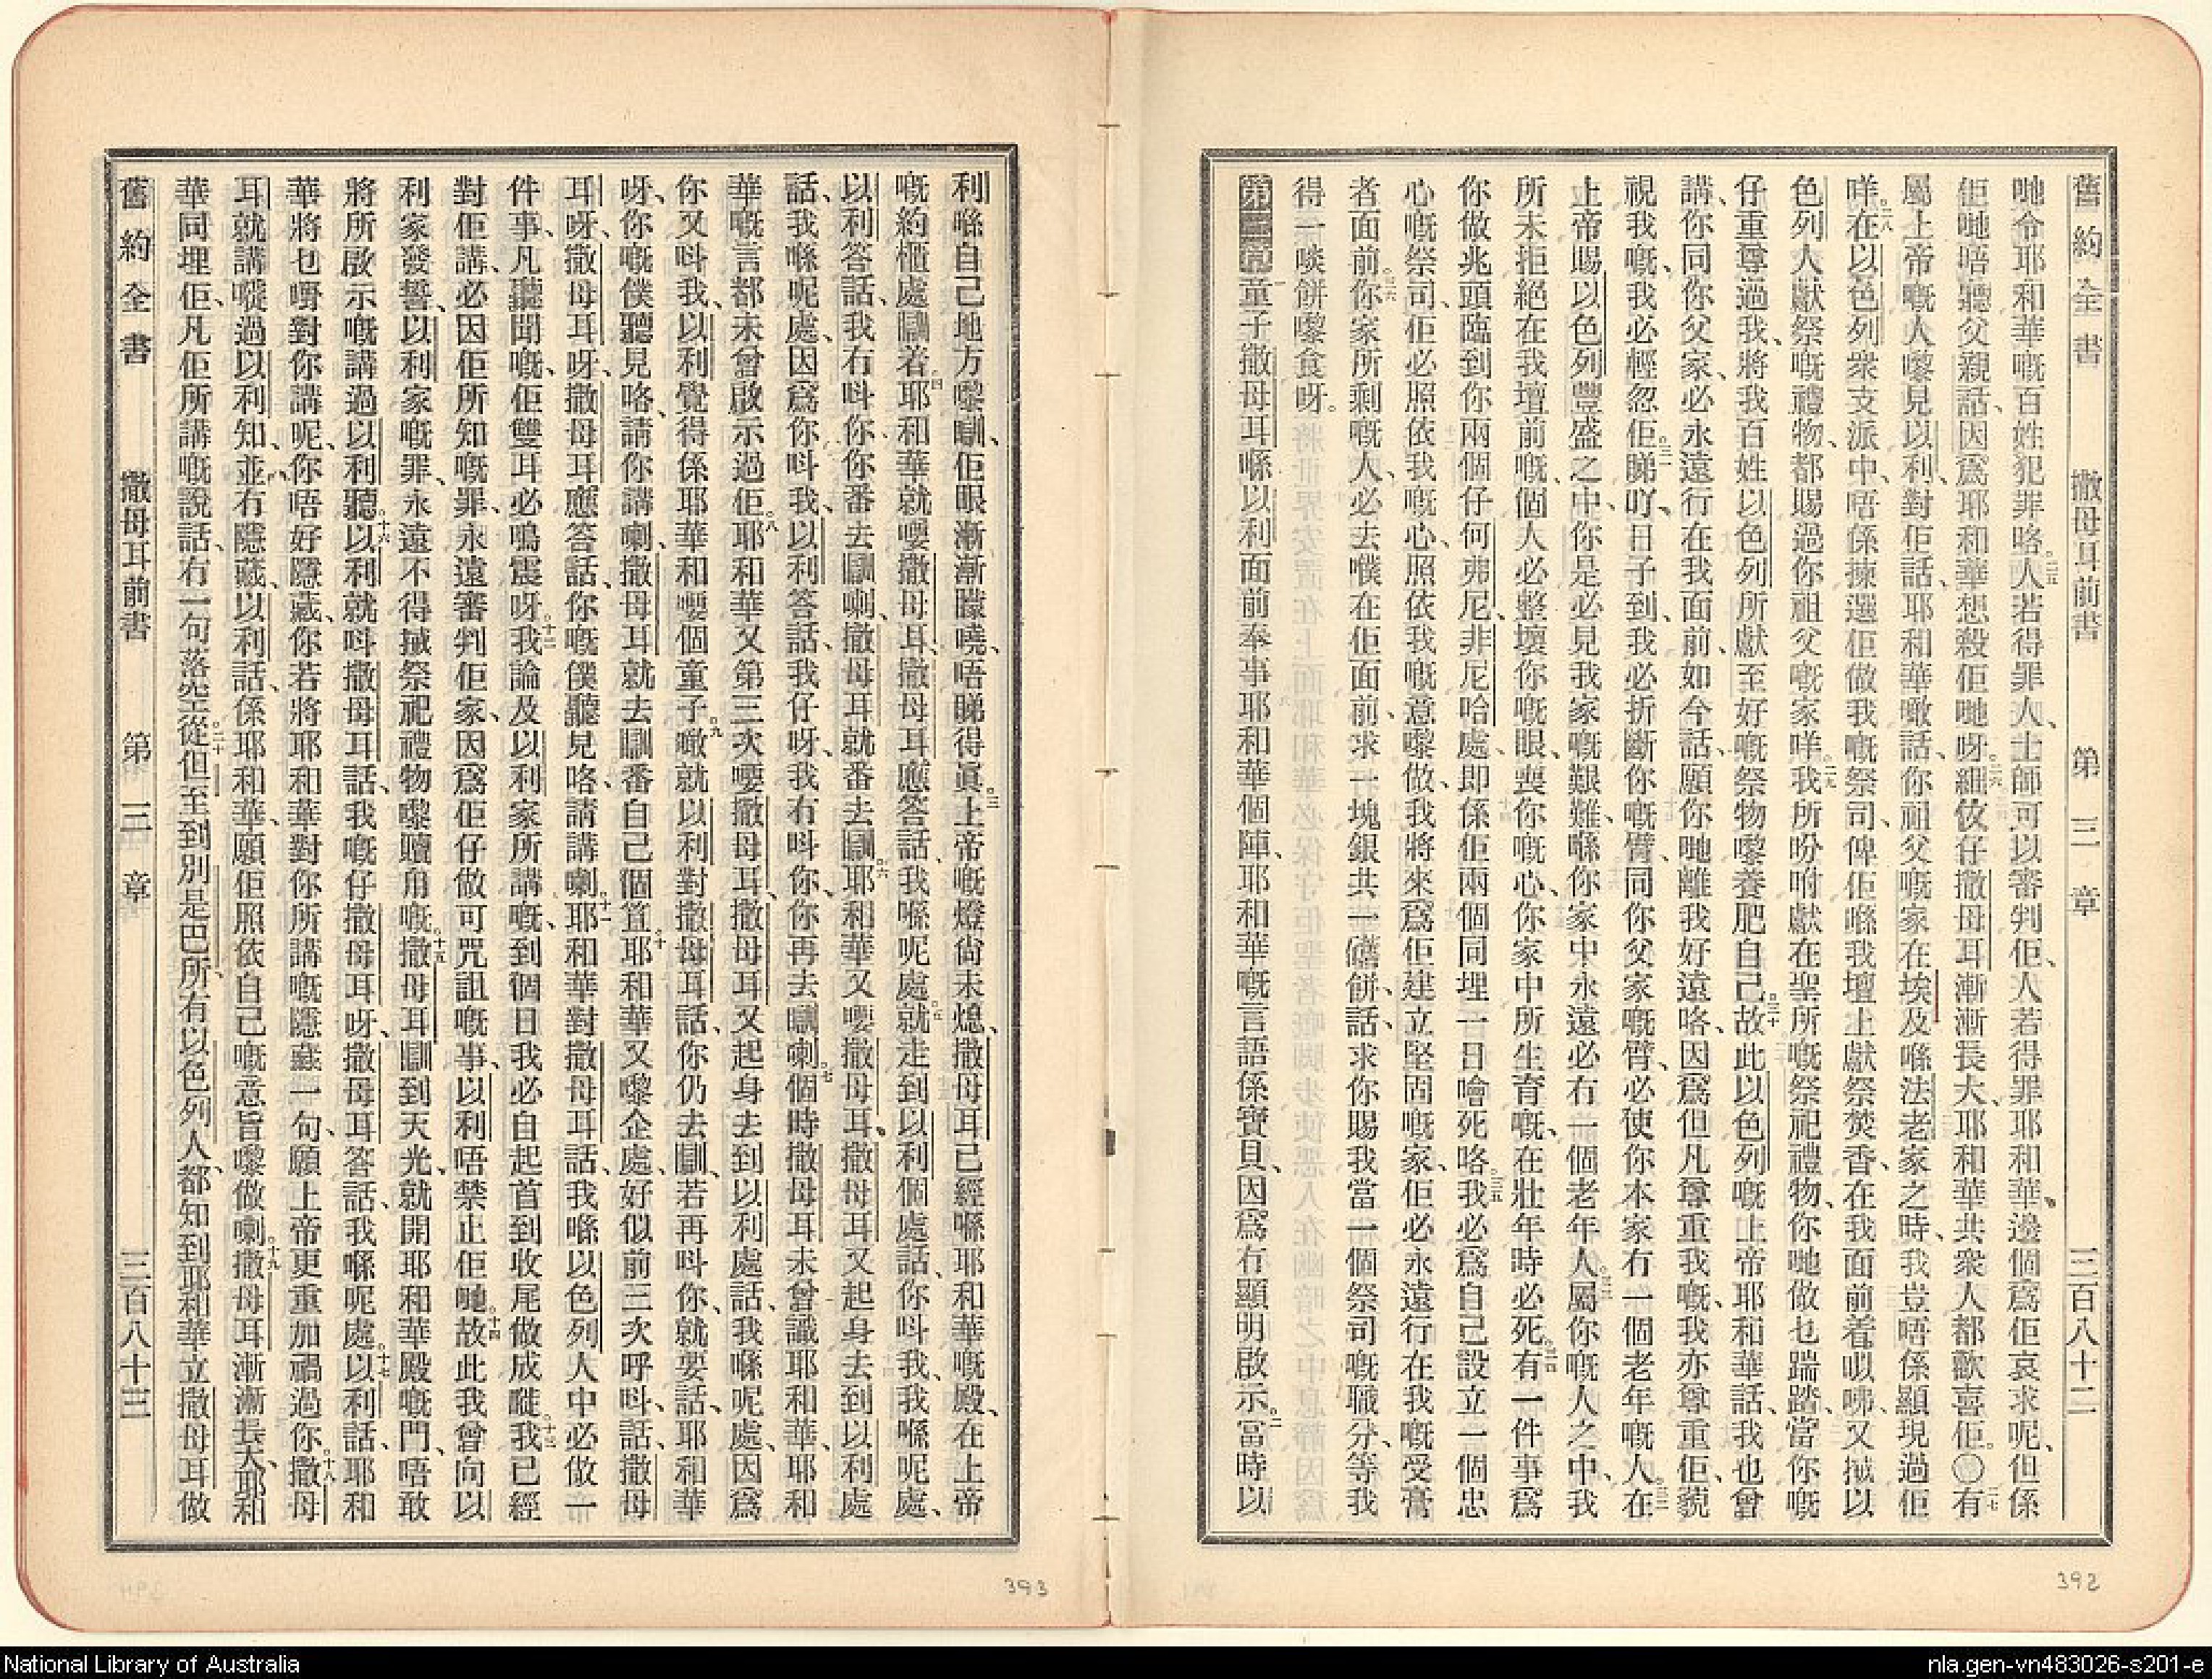 舊約全書　撒母耳前書　第三章　三百八十二
哋令耶和華嘅百姓犯罪咯。二五人若得罪人、士師可以審判佢、人若得罪耶和華、邊個爲佢哀求呢、但係
佢哋唔聽父親話、因爲耶和華想殺佢哋呀。二六細伩仔撒母耳漸漸長大、耶和華共衆人都歡喜佢。〇二七有
屬上帝嘅人嚟見以利、對佢話、耶和華噉話、你祖父嘅家在埃及喺法老家之時、我豈唔係顯現過佢
咩。二八在以色列衆支派中、唔係揀選佢做我嘅祭司、俾佢喺我壇上獻祭焚香、在我面前着㕥咈、又搣以
色列人獻祭嘅禮物、都賜過你祖父嘅家咩。二九我所吩咐獻在聖所嘅祭祀禮物、你哋做乜踹踏、當你嘅
仔重尊過我、將我百姓以色列所獻至好嘅祭物嚟養肥自己。三十故此以色列嘅上帝耶和華話、我也曾
講、你同你父家、必永遠行在我面前、如今話、願你哋離我好遠咯、因爲但凡尊重我嘅、我亦尊重佢、藐
視我嘅、我必輕忽佢。三一睇吖、日子到、我必折斷你嘅臂、同你父家嘅臂、必使你本家冇一個老年嘅人。三二在
上帝賜以色列豐盛之中、你是必見我家嘅艱難、喺你家中永遠必冇一個老年人。三三屬你嘅人之中、我
所未拒絕在我壇前嘅、個人必整壞你嘅眼、喪你嘅心、你家中所生育嘅、在壯年時必死。三四有一件事爲
你做兆頭、臨到你兩個仔何弗尼、非尼哈處、即係佢兩個同埋一日噲死咯。三五我必爲自己設立一個忠
心嘅祭司、佢必照依我嘅心、照依我嘅意嚟做、我將來爲佢建立堅固嘅家、佢必永遠行在我嘅受膏
者面前。三六你家所剩嘅人、必去噗在佢面前、求一塊銀共一𥗬餅、話、求你賜我當一個祭司嘅職分、等我
得一啖餅嚟食呀。
第三章 一童子撒母耳喺以利面前奉事耶和華個陣、耶和華嘅言語係寶貝、因爲冇顯明啟示。二當時以
利喺自己地方嚟瞓、佢眼漸漸矇曉、唔睇得眞。三上帝嘅燈尙未熄、撒母耳已經喺耶和華嘅殿、在上帝
嘅約櫃處瞓着。四耶和華就嗌撒母耳、撒母耳應答話、我喺呢處。五就走到以利個處、話、你呌我、我喺呢處、
以利答話、我冇呌你、你番去瞓喇、撒母耳就番去瞓。六耶和華又嗌撒母耳、撒母耳又起身去到以利處
話、我喺呢處、因爲你呌我、以利答話、我仔呀、我冇呌你、你再去瞓喇。七個時撒母耳未曾識耶和華、耶和
華嘅言都未曾啟示過佢。八耶和華又第三次嗌撒母耳、撒母耳又起身去到以利處話、我喺呢處、因爲
你又呌我、以利覺得係耶和華嗌個童子。九噉就以利對撒母耳話、你仍去瞓、若再呌你、就要話、耶和華
呀、你嘅僕聽見咯、請你講喇、撒母耳就去瞓番自己個笪。十耶和華又嚟企處、好似前三次呼呌、話、撒母
耳呀、撒母耳呀、撒母耳應答話、你嘅僕聽見咯、請講喇。十一耶和華對撒母耳話、我喺以色列人中必做一
件事、凡聽聞嘅、佢雙耳必鳴震呀。十二我論及以利家所講嘅、到個日我必自起首到收尾做成嚡。十三我已經
對佢講、必因佢所知嘅罪、永遠審判佢家、因爲佢仔做可咒詛嘅事、以利唔禁止佢哋。十四故此我曾向以
利家發誓、以利家嘅罪、永遠不得搣祭祀禮物嚟贖甪嘅。十五撒母耳瞓到天光、就開耶和華殿嘅門、唔敢
將所啟示嘅講過以利聽。十六以利就呌撒母耳話、我嘅仔撒母耳呀、撒母耳答話、我喺呢處。十七以利話、耶和
華將乜嘢對你講呢、你唔好隱藏、你若將耶和華對你所講嘅隱藏一句、願上帝更重加禍過你。十八撒母
耳就講嚨過以利知、並冇隱藏、以利話、係耶和華、願佢照依自己嘅意旨嚟做喇。十九撒母耳漸漸長大、耶和
華同埋佢、凡佢所講嘅說話、冇一句落空。二十從但至到別是巴、所有以色列人、都知到耶和華立撒母耳做
舊約全書　撒母耳前書　第三章　三百八十三
393
392
National Library of Australia
nla.gen-vn483026-s201-e